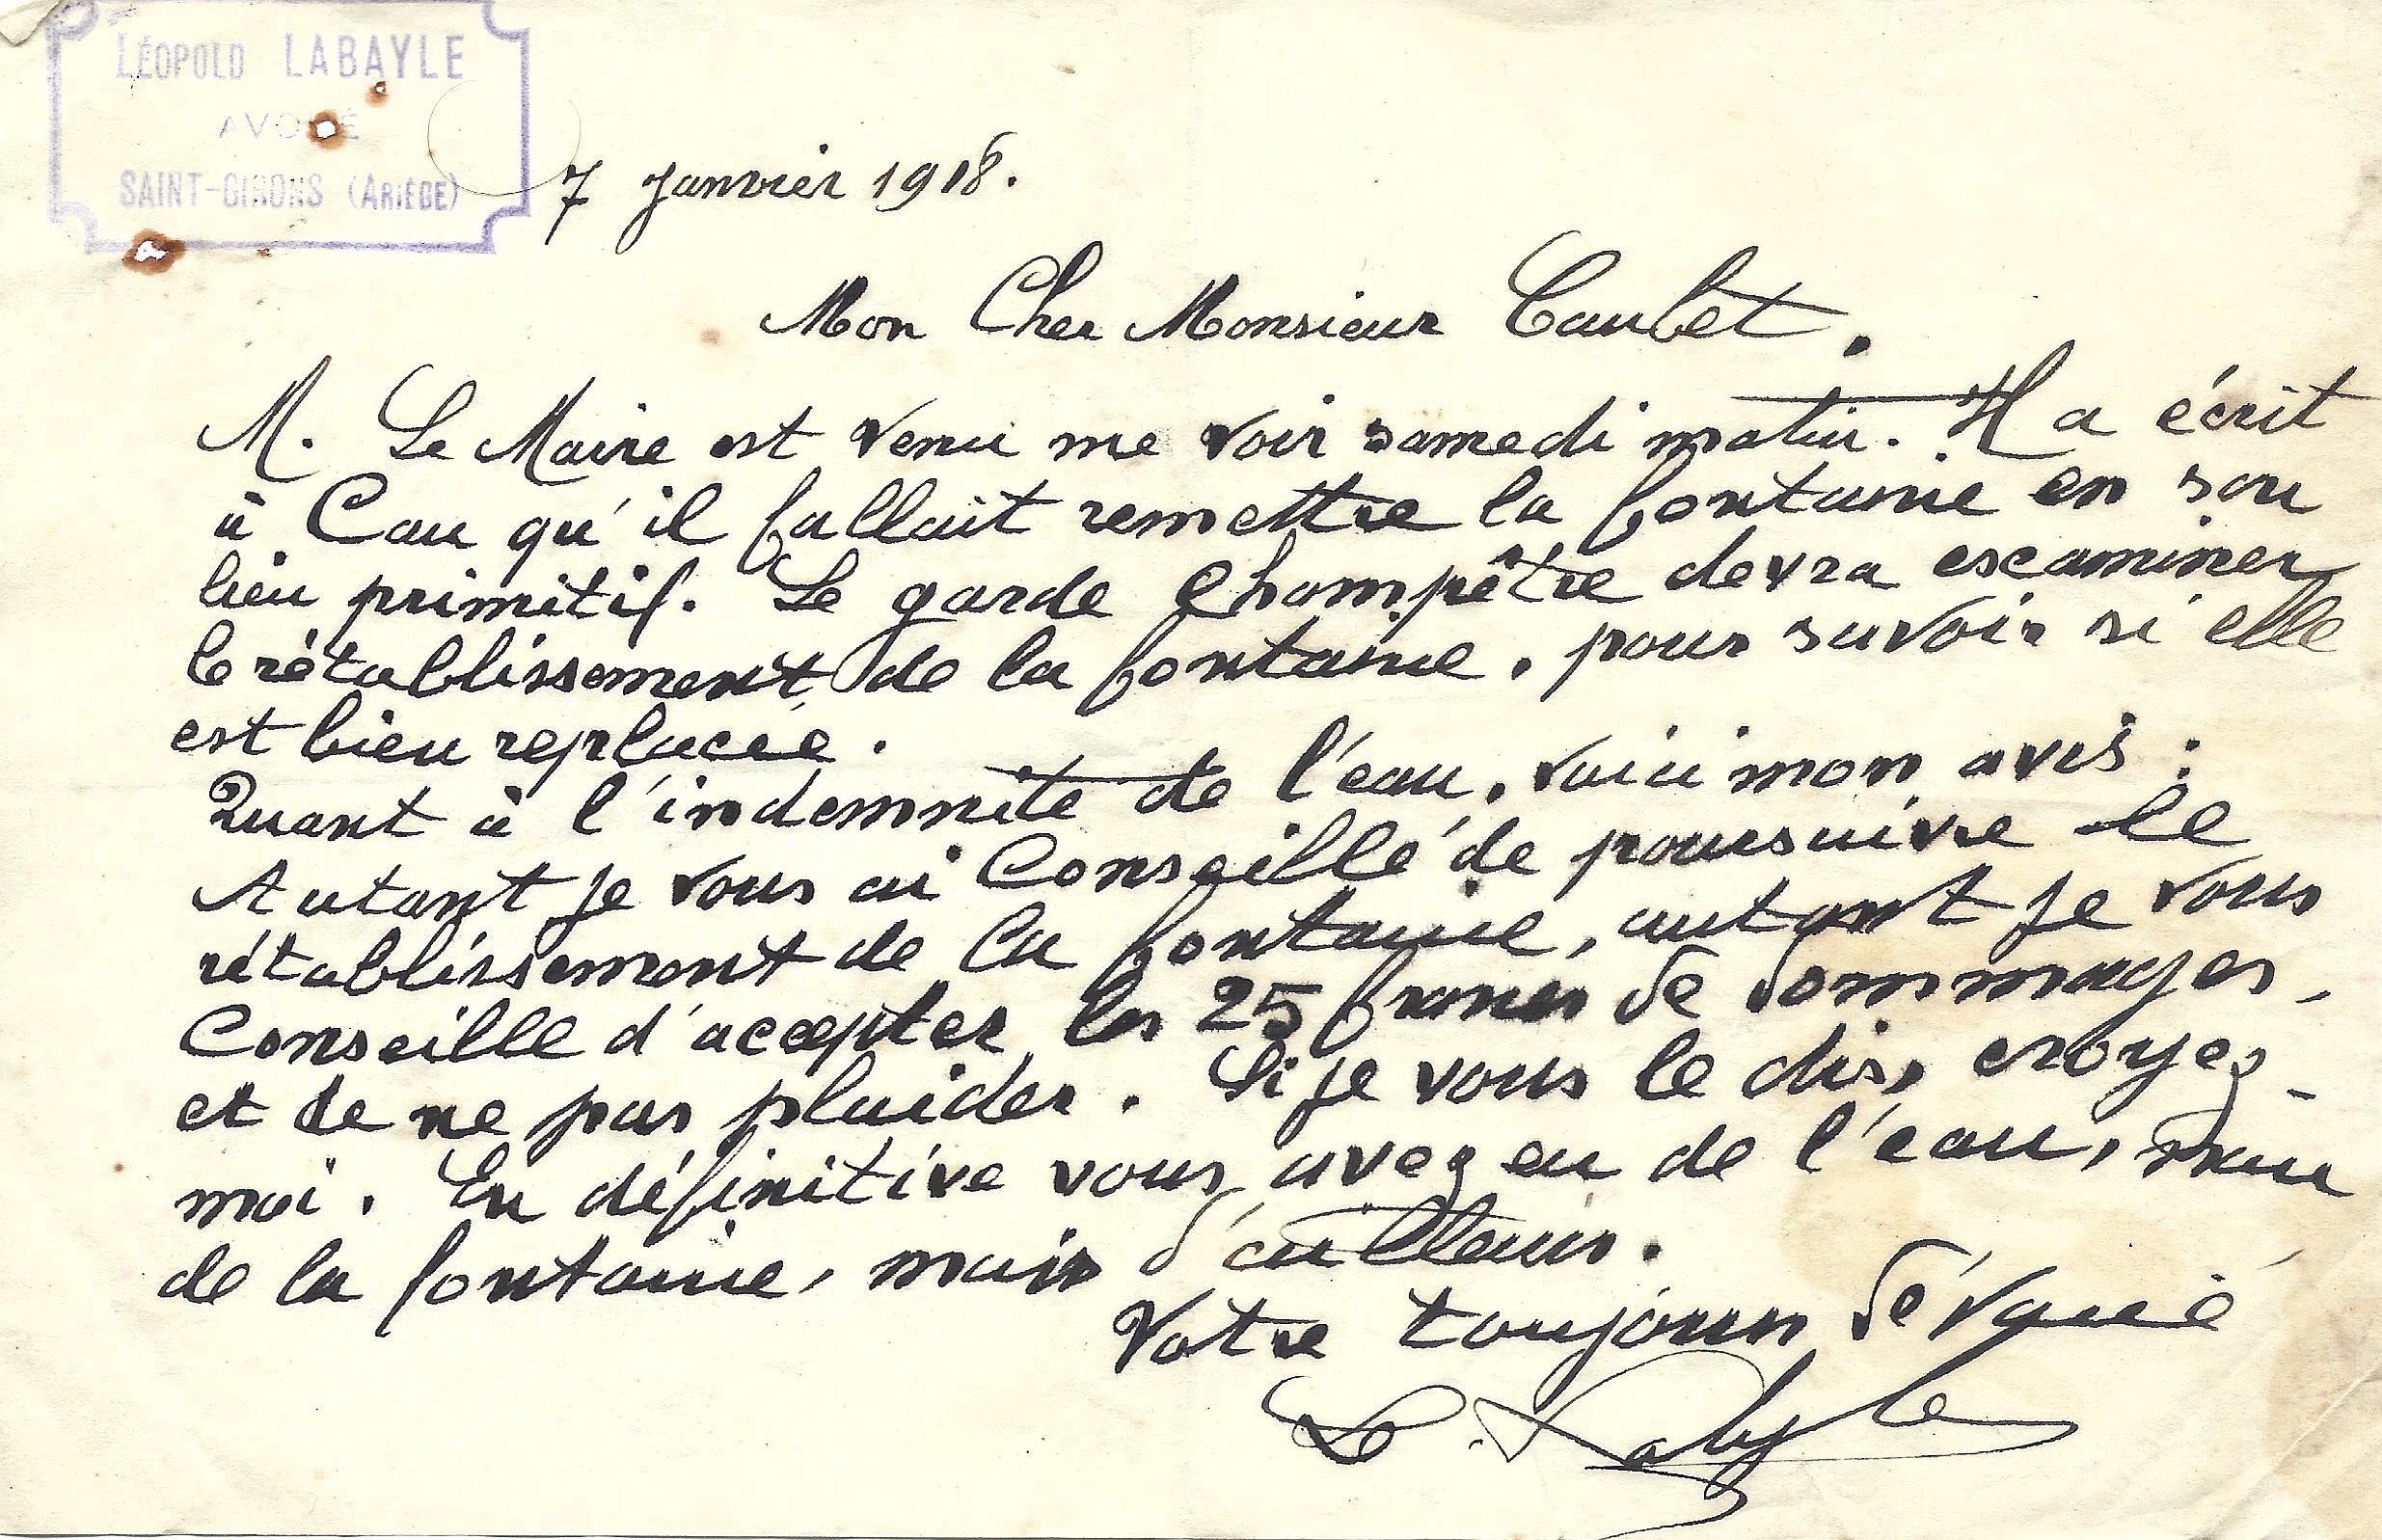 LÉOPOLD LABAYLE
AVOUÉ
SAINT-GIRONS (ARIÈGE)
7 Janvier 1918.
Mon Cher Monsieur Caubet.
M. Le Maire est venu me voir samedi matin. Il a écrit
à Cau qu'il fallait remettre la fontaine en son
lieu primitif. Le garde Champêtre devra examiner
le rétablissement de la fontaine, pour savoir si elle
est bien replacée.
Quant à l'indemnité de l'eau, voici mon avis :
Autant je vous ai Conseillé de poursuivre le
rétablissement de la fontaine, autant je vous
Conseille d'accepter les 25 francs de dommages,
et de ne pas plaider. Si je vous le dis, croyez-
moi. En définitive vous avez eu de l'eau, non
de la fontaine, mais d'ailleurs.
Votre toujours dévoué
L. Labayle